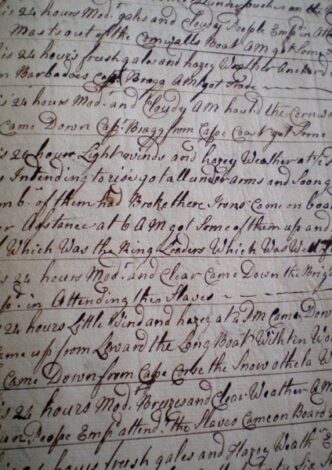 on the
is 24 hours Mod.r gales and Clowdy People Emp.d in Atten
Masts out of the Cornwalls Boat AM got Some
is 24 hours fresh gales and hazey Weather Anchord
m Barbadoes Cap.t Bragg AM got Some
is 24 hours Mod. and Cloudy AM haul'd the Cornwa
Came Down Cap.t Bragg from Cape Coast got Som
is 24 hours Light winds and hazey Weather at
Intending to rise got all under arms and Soon g
m b.r of them had Broke there Irons Came on boa
r Distance at 6 AM got Some of them up and
Which Was the Ring Leaders Which Was
is 24 hours Mod. and Clear Came Down the Brig
p.d in Attending the Slaves
24 hours Little Wind and hazey at 2 PM Came Down
me up from Leward the Long Boat With Wo
Came Down from Cape the Snow othela
is 24 hours Mod. Brezes and Clear Weather A
People Emp.d attend.g the Slaves Came on Board
is 24 hours fresh gales and Hazey Weath